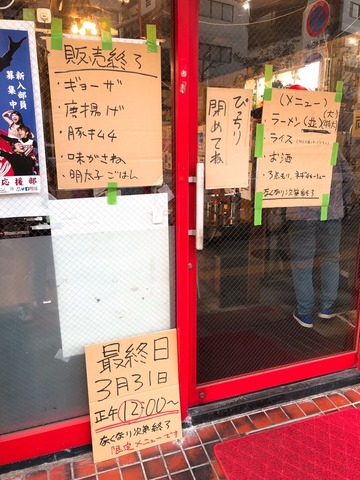 販売終了
・ギョーザ
・唐揚げ
・豚キムチ
・味がさね
・明太子ごはん
ぴっちり
閉めてね
(メニュー)
・ラーメン(並)(大)
・ライス
・お酒
なくなり次第終了
新入部員
募集中
応援部
最終日
3月31日
正午12:00〜
なくなり次第終了
限定メニューです